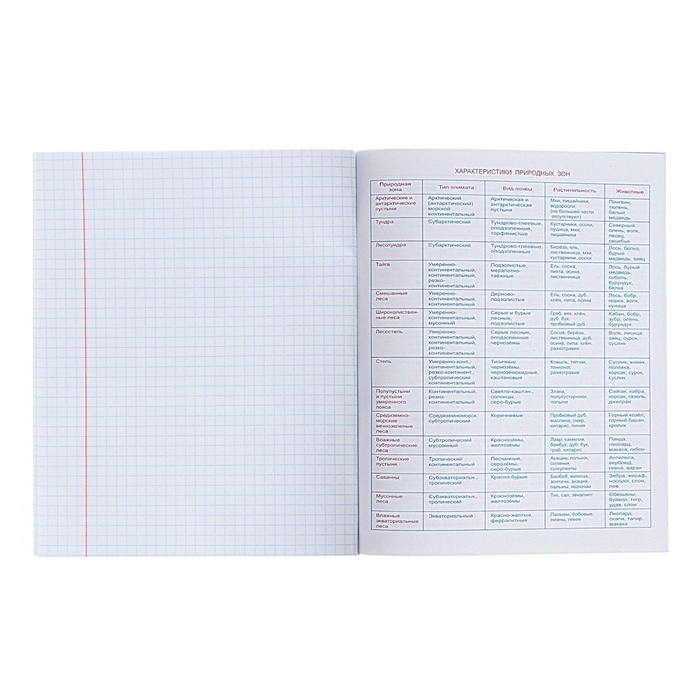 ХАРАКТЕРИСТИКИ ПРИРОДНЫХ ЗОН
Природная зона Тип климата Вид почвы Растительность Животные
Арктические и антарктические пустыни Арктический (антарктический) морской континентальный Арктическая и антарктическая пустыни Мхи, лишайники, водоросли (на большей части отсутствует) Пингвин, тюлень, белый медведь
Тундра Субарктический Тундрово-глеевые, оподзоленные, торфянистые Кустарники, осоки, пушица, мхи, лишайники Северный олень, волк, песец, овцебык
Лесотундра Субарктический Тундрово-глеевые, оподзоленные Берёза, ель, лиственница, мхи, кустарники, осоки Лось, белка, бурый медведь, заяц
Тайга Умеренно-континентальный, континентальный, резко-континентальный Подзолистые, мерзлотно-таёжные Ель, сосна, пихта, осина, лиственница Лось, бурый медведь, соболь, бурундук, белка
Смешанные леса Умеренно-континентальный, континентальный Дерново-подзолистые Ель, сосна, дуб, клён, липа, осина Лось, бобр, норка, волк, куница
Широколиственные леса Умеренно-континентальный, муссонный Серые и бурые лесные, подзолистые Граб, вяз, клён, дуб, бук, пробковый дуб Кабан, бобр, зубр, олень, бурундук
Лесостепь Умеренно-континентальный, континентальный, резко-континентальный Серые лесные, оподзоленные чернозёмы Сосна, берёза, лиственница, дуб, осина, липа, клён, разнотравие Волк, лисица, заяц, сурок, суслик
Степь Умеренно-конт., континентальный, резко-континент., субтропический континентальный Типичные чернозёмы, чернозёмовидные, каштановые Ковыль, типчак, тонконог, разнотравие Суслик, хомяк, полёвка, корсак, сурок, суслик
Полупустыни и пустыни умеренного пояса Континентальный, резко-континентальный Светло-каштан., солонцы, серо-бурые Злаки, полукустарники, полыни Сайгак, кобра, корсак, газель, джейран
Средиземноморские вечнозеленые леса Средиземноморск. субтропический Коричневые Пробковый дуб, маслина, лавр, кипарис, пиния Горный козёл, горный баран, кролик
Влажные субтропические леса Субтропический муссонный Краснозёмы, желтозёмы Лавр, камелия, бамбук, дуб, бук, граб, кипарис Панда, леопард, макака, гибон
Тропические пустыни Тропический континентальный Песчаные, серозёмы, серо-бурые Акации, полыни, солянки, суккуленты Антилопа, верблюд, гиена, варан
Саванны Субэкваториальн., тропический Красно-бурые Баобаб, мимоза, зонтичн. акация, пальмы, молочай Зебра, жираф, носорог, слон, лев
Муссонные леса Субэкваториальн., тропический Краснозёмы, желтозёмы Тик, сал, эвкалипт Обезьяны, буйвол, тигр, удав, слон
Влажные экваториальные леса Экваториальный Красно-желтые, ферралитные Пальмы, бобовые, лианы, гевея Леопард, окапи, тапир, макака